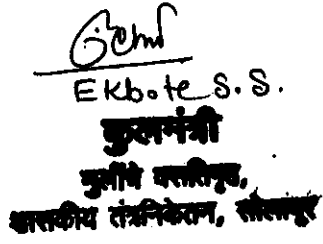 Ekbote S. S.
कुलमंत्री
मुलींचे वसतिगृह,
शासकीय तंत्रनिकेतन, सोलापूर